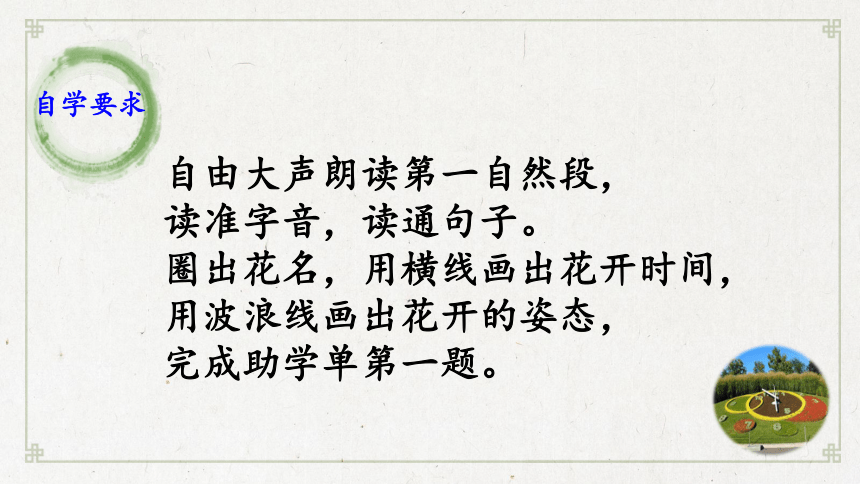 自学要求
自由大声朗读第一自然段，
读准字音，读通句子。
圈出花名，用横线画出花开时间，
用波浪线画出花开的姿态，
完成助学单第一题。